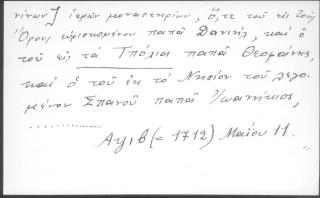 νίνων] ἱερῶν μοναστηρίων, ὅ,τε τοῦ εἰς τοῦ
Ὄρους εὑρισκομένου παπᾶ Δανιήλ, καὶ ὁ
τοῦ εἰς τὰ Τπόλια παπᾶ Θεοφάνης,
καὶ ὁ τοῦ ἐκ τὸ Νησίον τοῦ λεγο-
μένου Σπανοῦ παπᾶ Ἰωαννίκιος,
...............
Αψιβ (= 1712) Μαΐου 11.